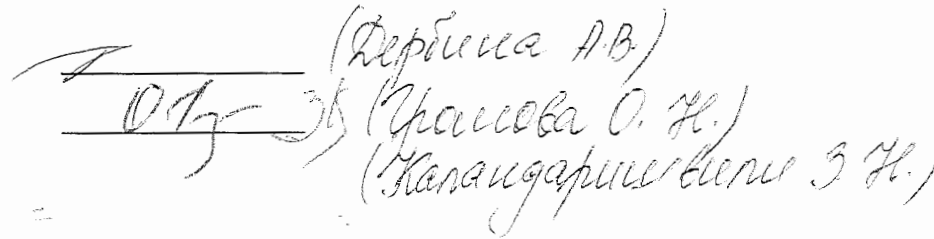 (Дербина А.В.)
(Громова О. Н.)
(Каландаришвили З Н.)